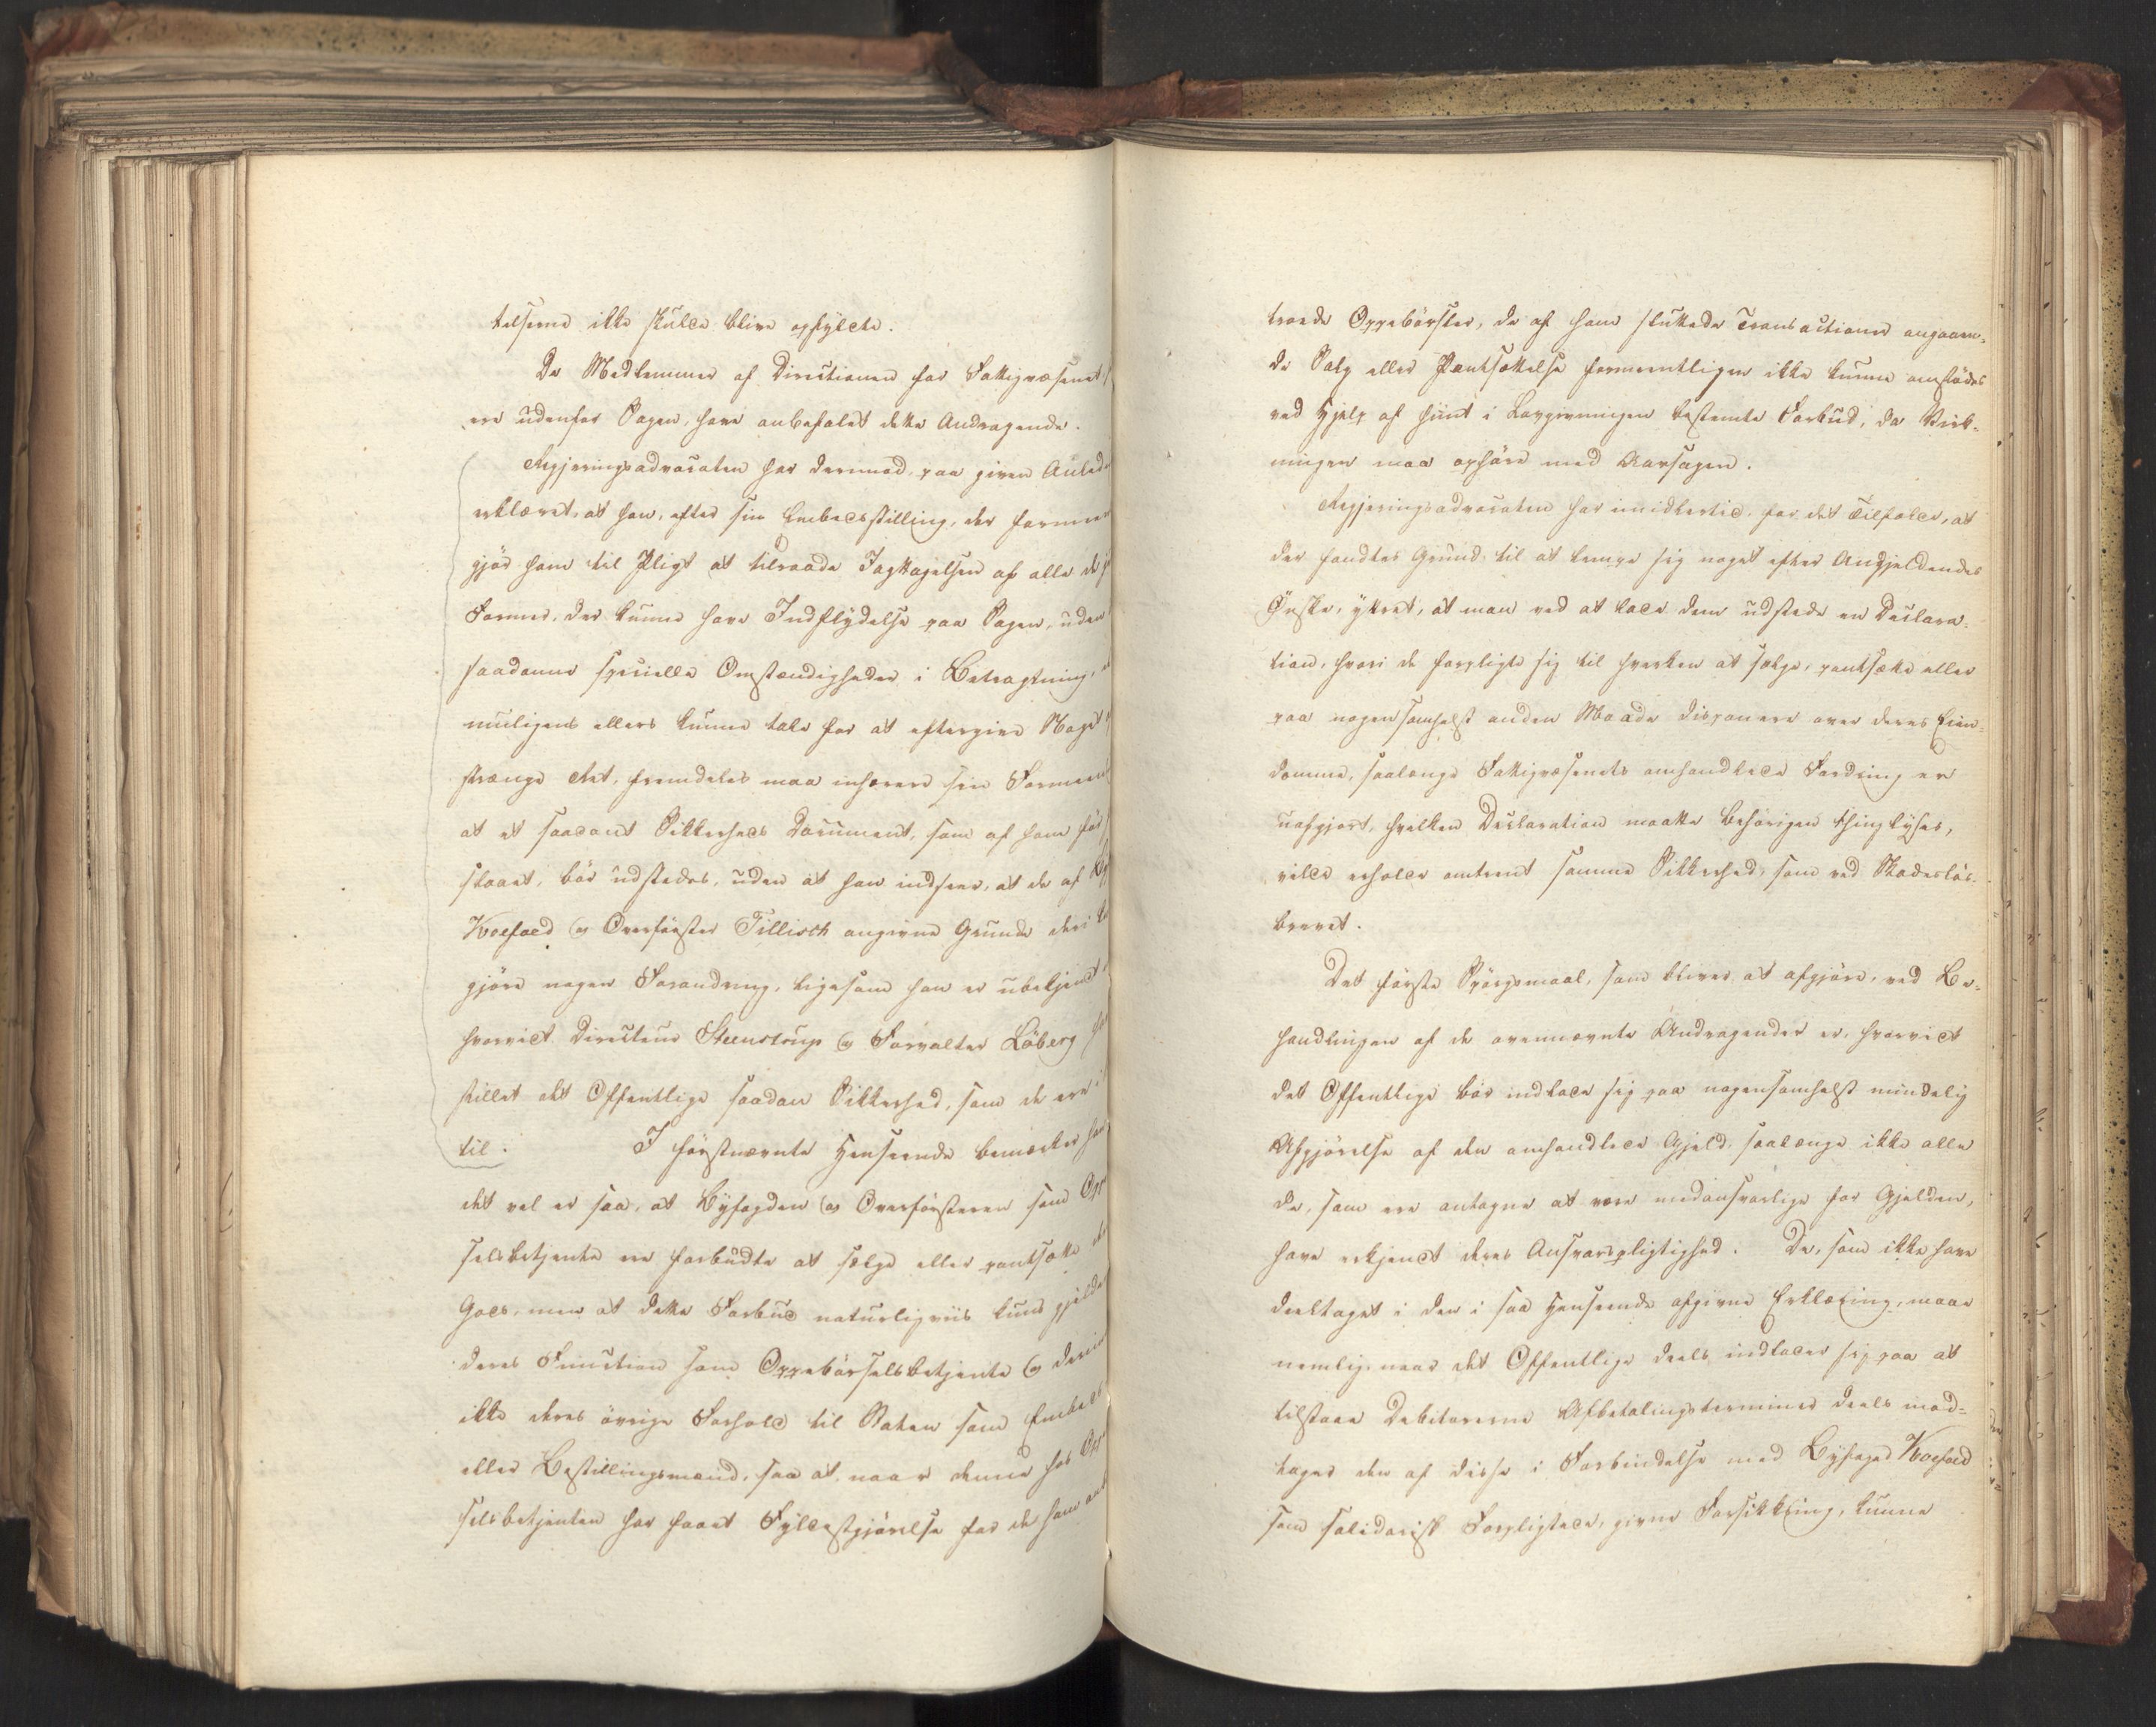 telserne ikke skulle blive opfyldte.
De Medlemmer af Directionen for Fattigvæsenet
ere udenfor Sagen, have anbefalet dette Andragende.
Regjeringsadvocaten har dernæst, paa given
erklæret, at han, efter sin Embedsstilling, der
gjør ham til Pligt at tilraade Iagttagelsen af alle
Former, der kunne have Indflydelse paa Sagen, uden
saadanne specielle Omstændigheder i Betragtning,
muligens ellers kunne tale for at eftergive Noget
strænge Ret, fremdeles maa inhærere sin
at et saadant Sikkerheds Document, som af ham
slaaet, bør udstedes, uden at han indseer, at de af
Koefoed og Overførster Tillisch angivne Grunde deri
gjøre nogen Forandring, ligesom han er ubekjendt
hvorvidt Directeur Steenstrup og Forvalter Löberg
stillet det Offentlige saadan Sikkerhed, som de ere
til. I førstnævnte Henseende bemærker
det vel er saa, at Byfogden og Overførsteren som
selsbetjente ere forbudte at sælge eller pantsætte
Gods, men at dette Forbud naturligviis kuns gjelder
deres Function som Oppebørselsbetjente og
ikke deres øvrige Forhold til Staten som
eller Bestillingsmænd, saa at, naar denne hos
selsbetjenten har faaet Fyldestgjørelse for de ham
troede Oppebørsler, de af ham sluttede Transactioner angaaen-
de Salg eller Pantsættelse formeentligen ikke kunne omstødes
ved Hjelp af hiint i Lovgivningen bestemte Forbud, da Virk-
ningen maa ophøre med Aarsagen.
Regjeringsadvocaten har imidlertid for det Tilfælde, at
der fandtes Grund til at lempe sig noget efter Angjeldendes
Ønske, yttret, at man ved at lade dem udstede en Declara-
tion, hvori de forpligte sig til hverken at sælge, pantsætte eller
paa nogensomhelst anden Maade disponere over deres Eien-
domme, saalænge Fattigvæsenets omhandlede Fordring er
uafgjort, hvilken Declaration maatte behørigen thinglyses,
vilde erholde omtrent samme Sikkerhed, som ved Skadesløs-
brevet.
Det første Spørgsmaal, som bliver at afgjøre, ved Be-
handlingen af de ovennævnte Andragender er, hvorvidt
det Offentlige bør indlade sig paa nogensomhelst mindelig
Afgjørelse af den omhandlede Gjeld, saalænge ikke alle
de, som ere antagne at være medansvarlige for Gjelden,
have erkjendt deres Ansvarspligtighed. De, som ikke have
deeltaget i den i saa Henseende afgivne Erklæring, maae
nemlig, naar det Offentlige deels indlader sig paa at
tilstaae Debitorerne Afbetalingsterminer deels mod-
tager den af disse i Forbindelse med Byfoged Koefoed
som solidarisk Forpligtede, givne Forsikkring, kunne